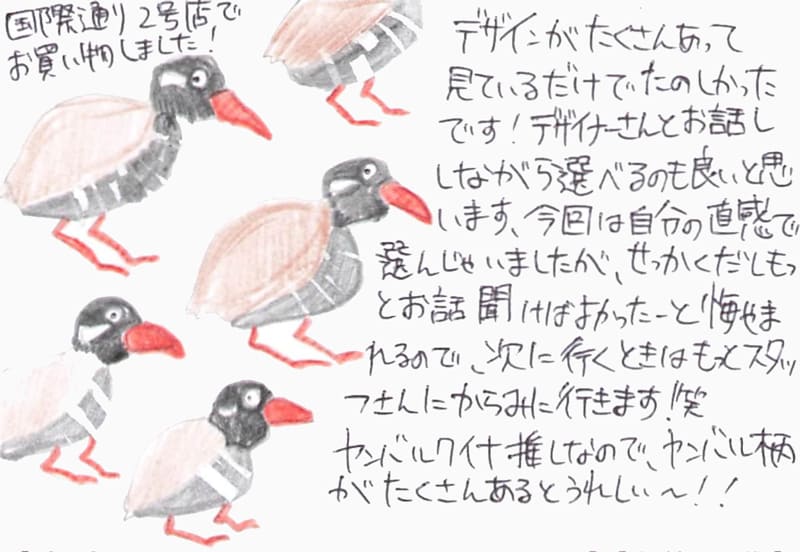 国際通り2号店で
お買い物しました!
デザインがたくさんあって
見ているだけでたのしかった
です!デザイナーさんとお話し
しながら選べるのも良いと思
います、今回は自分の直感で
選んじゃいましたが、せっかくだしもっ
とお話聞けばよかったーと悔やま
れるので、次に行くときはもっとスタッ
フさんにからみに行きます!笑
ヤンバルクイナ推しなので、ヤンバル柄
がたくさんあるとうれしい〜!!